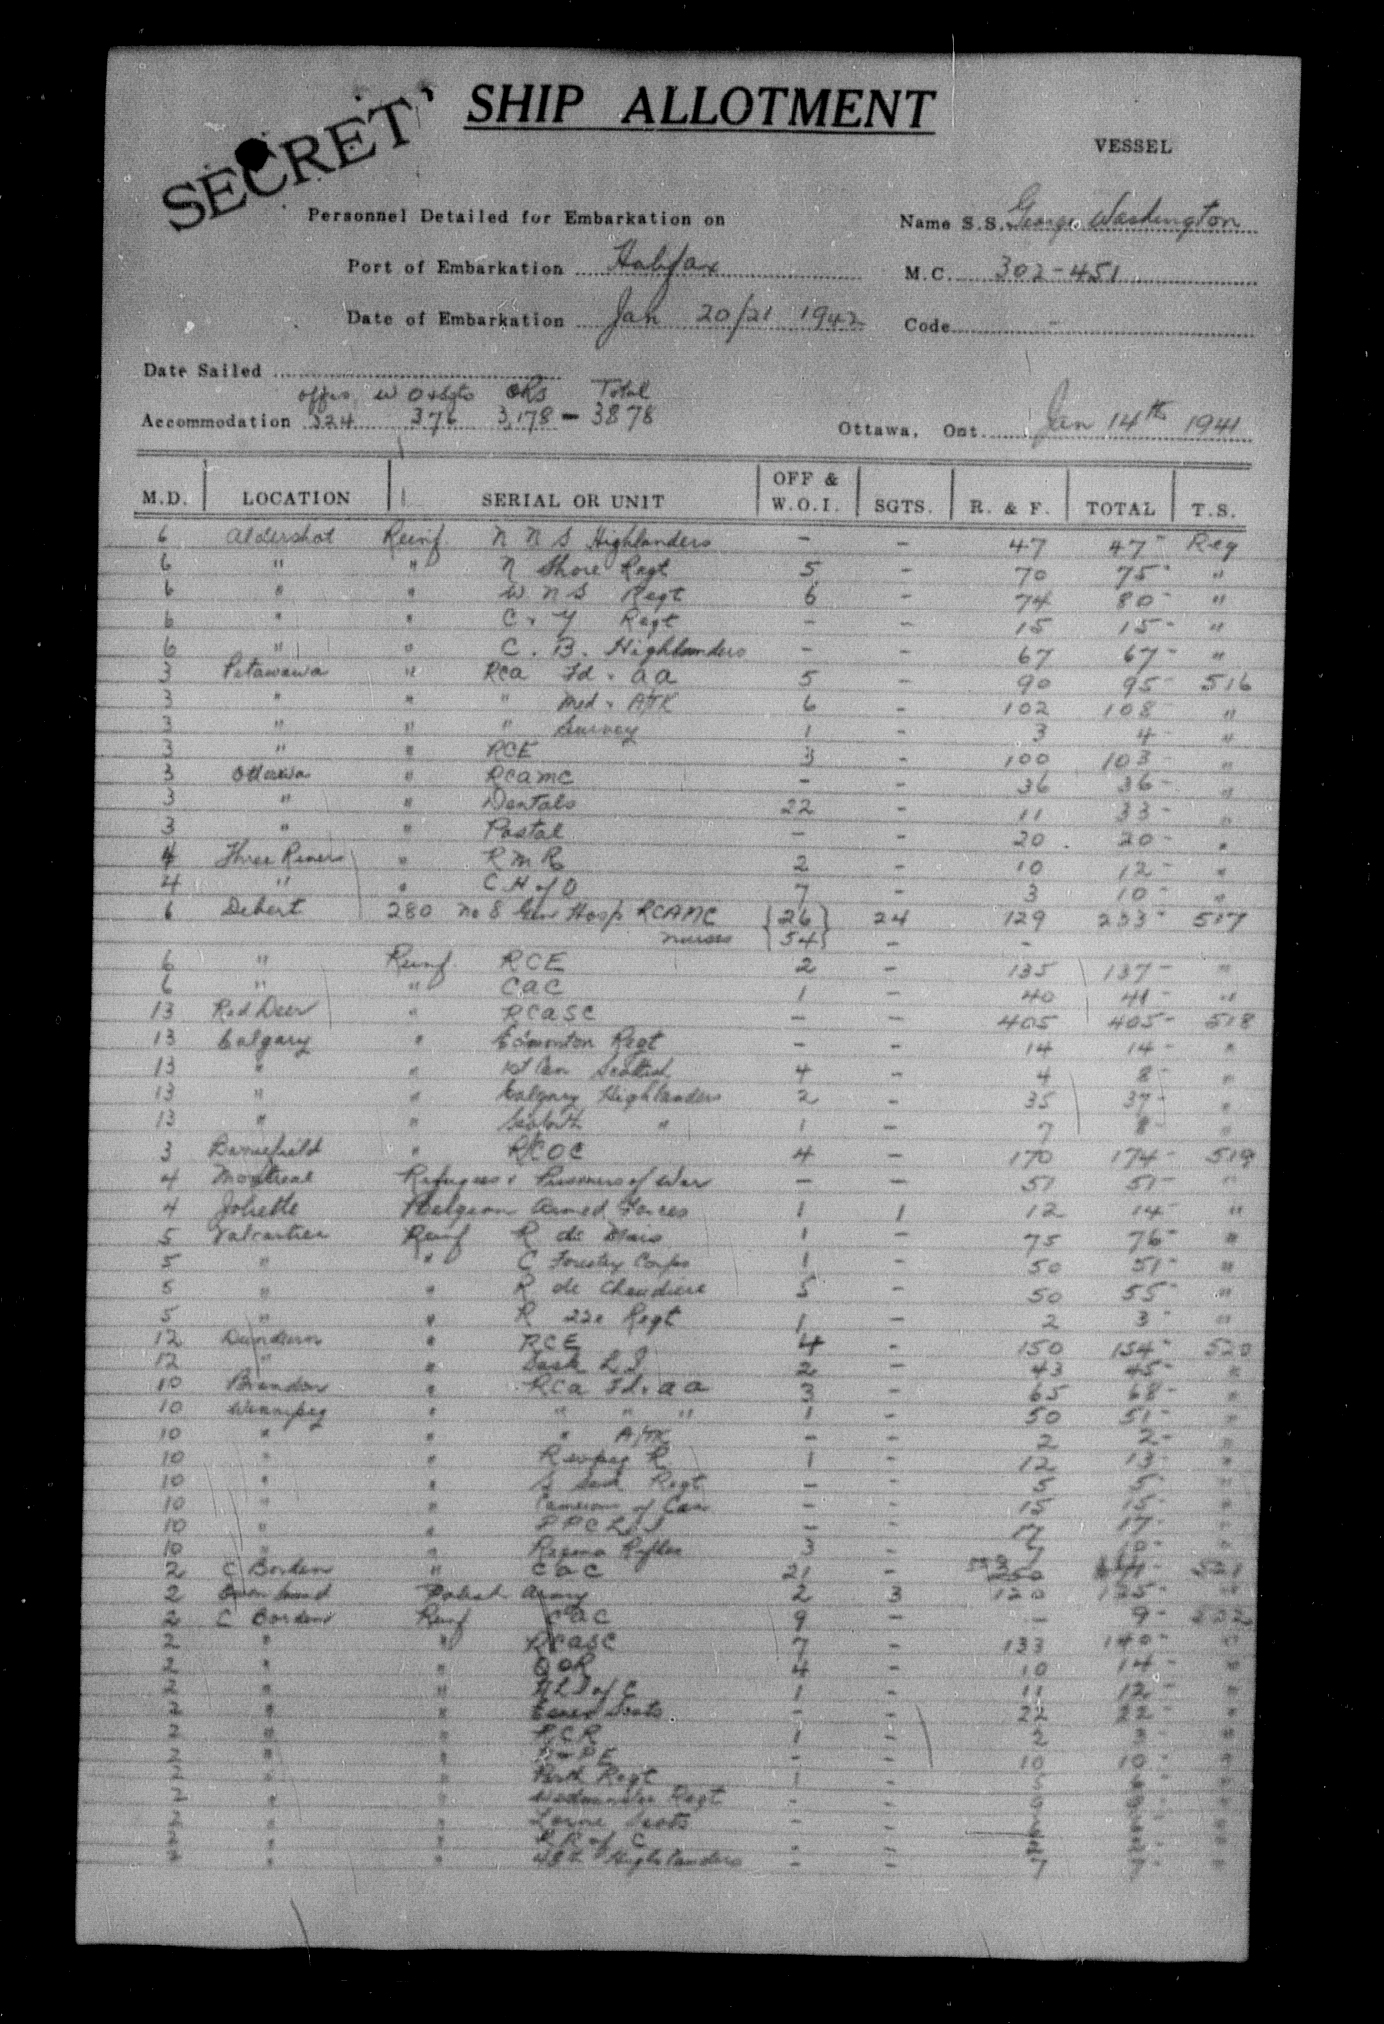 SECRET
SHIP ALLOTMENT
VESSEL
Personnel Detailed for Embarkation on Name S.S. George Washington
Port of Embarkation Halifax M.C. 302-451
Date of Embarkation Jan 20/21 1942 Code -
Date Sailed
offrs W O & Sgts ORs Total
Accommodation 324 376 3,178 - 3878
Ottawa, Ont. Jan 14th 1941
M.D. LOCATION SERIAL OR UNIT OFF & W.O.I. SGTS. R. & F. TOTAL T.S.
6 Aldershot Reinf. N N S Highlanders - - 47 47 - Reg
6 " " N Shore Regt 5 - 70 75 - "
6 " " W N S Regt 6 - 74 80 - "
6 " " C. Y Regt - - 15 15 - "
6 " " C. B. Highlanders - - 67 67 - "
3 Petawawa " RCA Fd. AA 5 - 90 95 - 516
3 " " " Med. A/TK 6 - 102 108 - "
3 " " " Survey 1 - 3 4 - "
3 " " RCE 3 - 100 103 - "
3 Ottawa " RCAMC - - 36 36 - "
3 " " Dentals 22 - 11 33 - "
3 " " Postal - - 20 20 - "
4 Three Rivers " R M R 2 - 10 12 - "
4 " " C H of O 7 - 3 10 - "
6 Debert 280 No 8 Gen Hosp RCAMC 26 24 129 233 - 517
nurses 54 - -
6 " Reinf. RCE 2 - 135 137 - "
6 " " CAC 1 - 40 41 - "
13 Red Deer " RCASC - - 405 405 - 518
13 Calgary " Edmonton Regt - - 14 14 - "
13 " " 1st Can Scottish 4 - 4 8 - "
13 " " Calgary Highlanders 2 - 35 37 - "
13 " " Seaforth " 1 - 7 8 - "
3 Barriefield " RCOC 4 - 170 174 - 519
4 Montreal Refugees & Prisoners of War - - 51 51 - "
4 Joliette Belgian Armed Forces 1 1 12 14 - "
5 Valcartier Reinf R de Mais 1 - 75 76 - "
5 " " C Forestry Corps 1 - 50 51 - "
5 " " R de Chaudiere 5 - 50 55 - "
5 " " R 22e Regt 1 - 2 3 - "
12 Dundurn " RCE 4 - 150 154 - 520
12 " " Sask L.I. 2 - 43 45 - "
10 Brandon " RCA Fd. AA 3 - 65 68 - "
10 Winnipeg " " " " 1 - 50 51 - "
10 " " " A/TK - - 2 2 - "
10 " " R Wpeg R 1 - 12 13 - "
10 " " S Sask Regt - - 5 5 - "
10 " " Camerons of Can - - 15 15 - "
10 " " PPCLI - - 17 17 - "
10 " " Regina Rifles 3 - 7 10 - "
2 C Borden " CAC 21 - 521
2 Owen Sound Polish Army 2 3 120 125 - "
2 C Borden Reinf CAC 9 - - 9 - 522
2 " " RCASC 7 - 133 140 - "
2 " " QOR 4 - 10 14 - "
2 " " HLI of C 1 - 11 12 - "
2 " " Essex Scots - - 22 22 - "
2 " " RCR 1 - 2 3 - "
2 " " - - 10 10 - "
2 " " Perth Regt 1 - 5 "
2 " " Westminster Regt - - "
2 " " Lorne Scots - - "
2 " " R R of C - - "
" " 48th Highlanders - - 7 7 - "